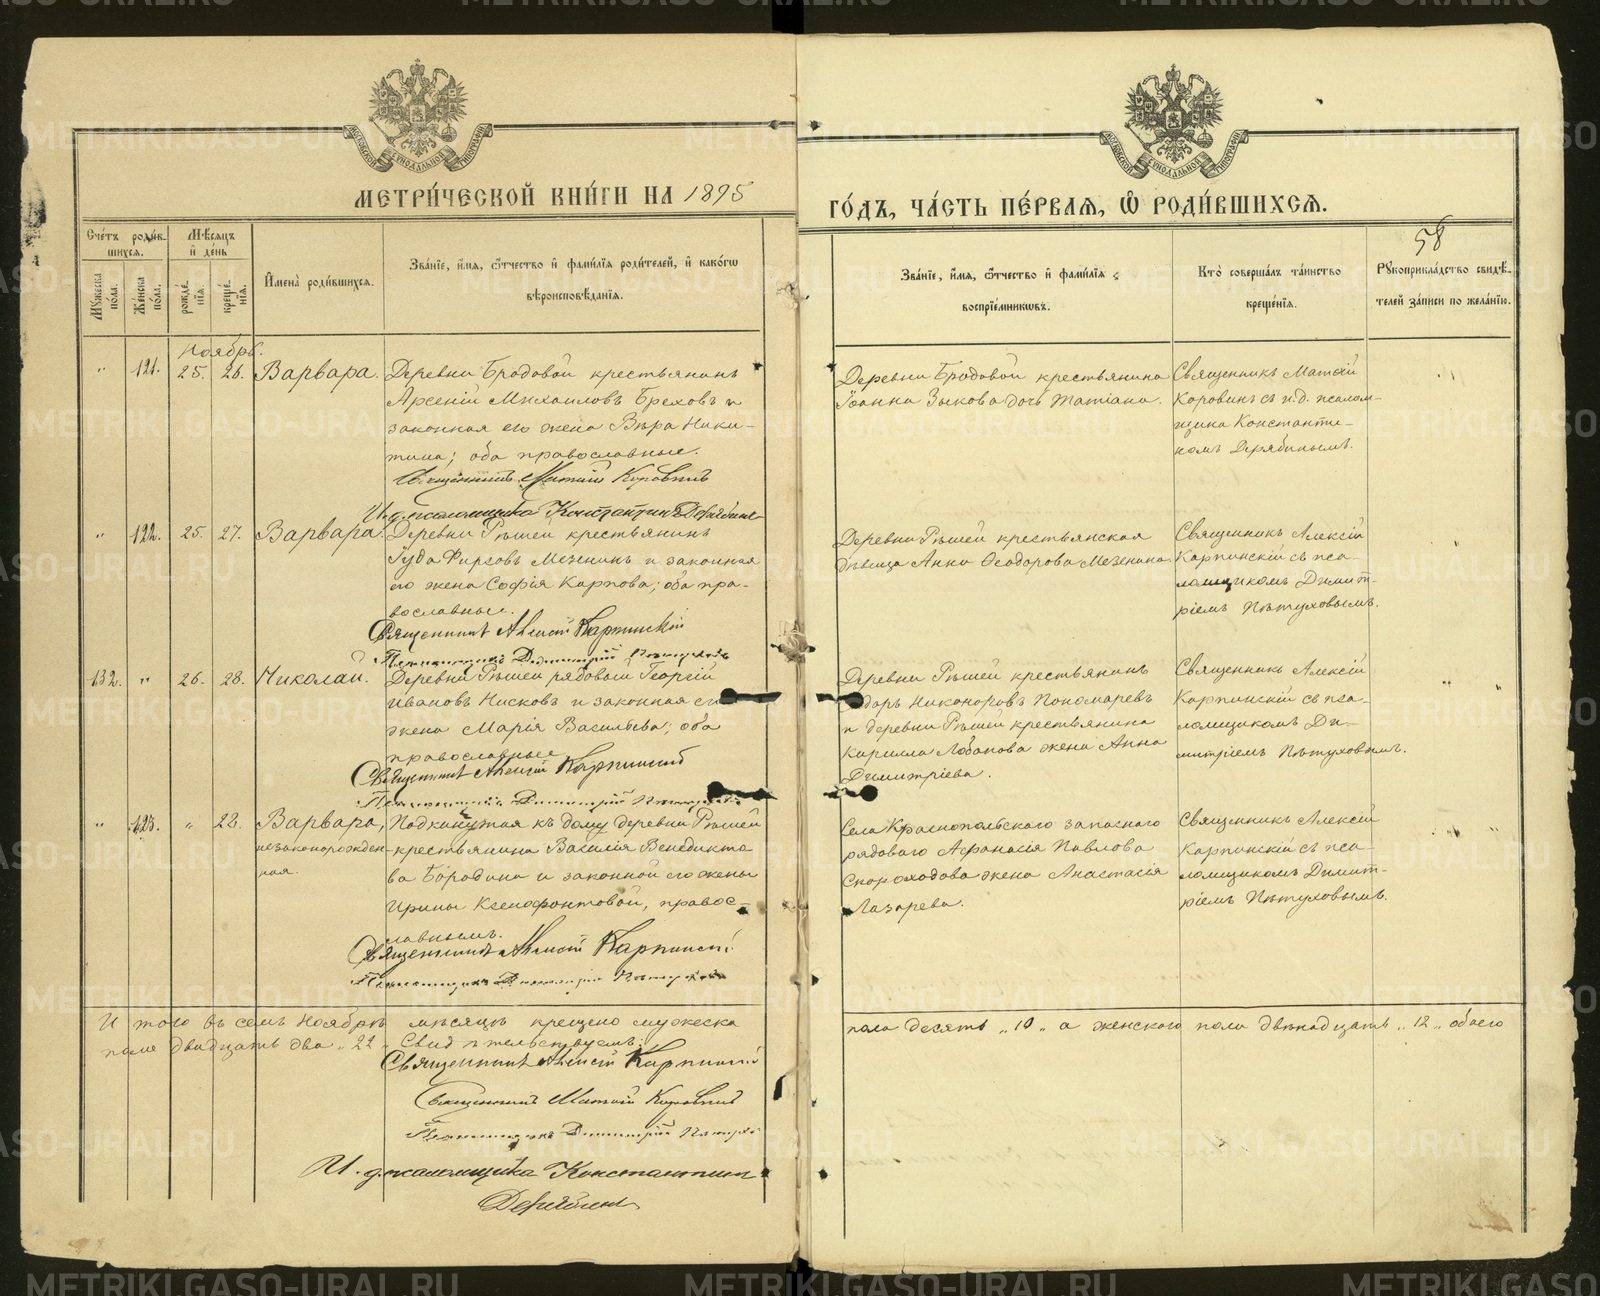 МЕТРИ́ЧЕСКОЙ КНИ́ГИ НА 1895
ГО́ДЪ, ЧА́СТЬ ПЕ́РВАЯ, Ѡ҆ РОДИ́ВШИХСЯ.
58
Счётъ роди́в-
шихся.
Мѣсяцъ
и҆ де́нь
Мꙋ́жеска по́ла.
Же́нска по́ла.
рожде́нїя.
креще́нїя.
И҆мена̀ роди́вшихся.
Зва́нїе, и҆́мя, ѻ҆́тчество и҆ фами́лїя роди́телей, и҆ како́гѡ
вѣроисповѣ́данїя.
Зва́нїе, и҆́мя, ѻ҆́тчество и҆ фами́лїя
воспрїе́мникѡвъ.
Кто̀ соверша́лъ та́инство
креще́нїя.
Рꙋкоприкла́дство свидѣ́-
телей за́писи по жела́нїю.
Ноябрь.
" 121. 25. 26. Варвара.
Деревни Бродовой крестьянинъ
Арсеній Михаиловъ Бреховъ и
законная его жена Вѣра Ники-
тина; оба православные.
Священникъ Матѳій Коровинъ
И. д. псаломщика Константинъ Дерябинъ
Деревни Бродовой крестьянина
Іоанна Зыкова дочь Татіана.
Священникъ Матѳій
Коровинъ съ и. д. псалом-
щика Константи-
номъ Дерябинымъ.
" 122. 25. 27. Варвара.
Деревни Рѣшей крестьянинъ
Іуда Фирсовъ Мезенинъ и законная
его жена Софія Карпова; оба пра-
вославные.
Священникъ Алексій Карпинскій
Псаломщикъ Димитрій Пѣтуховъ
Деревни Рѣшей крестьянская
дѣвица Анна Ѳеодорова Мезенина.
Священникъ Алексій
Карпинскій съ пса-
ломщикомъ Димит-
ріемъ Пѣтуховымъ.
132. " 26. 28. Николай.
Деревни Рѣшей рядовый Георгій
Ивановъ Нисковъ и законная его
жена Марія Васильева; оба
православные
Священникъ Алексій Карпинскій
Псаломщикъ Димитрій Пѣтуховъ
Деревни Рѣшей крестьянинъ
Никоноровъ Пономаревъ
и деревни Рѣшей крестьянина
Кирилла Лобанова жена Анна
Димитріева.
Священникъ Алексій
Карпинскій съ пса-
ломщикомъ Ди-
митріемъ Пѣтуховымъ.
" 123. " 28. Варвара,
незаконорожден-
ная.
Подкинутая къ дому деревни Рѣшей
крестьянина Василія Венедикто
ва Бородина и законной его жены
Ирины Ксенофонтовой, правос-
лавнымъ.
Священникъ Алексій Карпинскій
Псаломщикъ Димитрій Пѣтуховъ
Села Краснопольскаго запаснаго
рядоваго Аѳанасія Павлова
Скороходова жена Анастасія
Лазарева.
Священникъ Алексій
Карпинскій съ пса-
ломщикомъ Димит-
ріемъ Пѣтуховымъ.
И того въ семъ Ноябрѣ мѣсяцѣ крещено мужеска
пола десять "10" а женскаго пола двѣнадцать "12" обоего
пола двадцать два "22" Свидѣтельствуемъ:
Священникъ Алексій Карпинскій
Священникъ Матѳій Коровинъ
Псаломщикъ Димитрій Пѣтуховъ
И. д. псаломщика Константинъ
Дерябинъ
METRIKI.GASO-URAL.RU